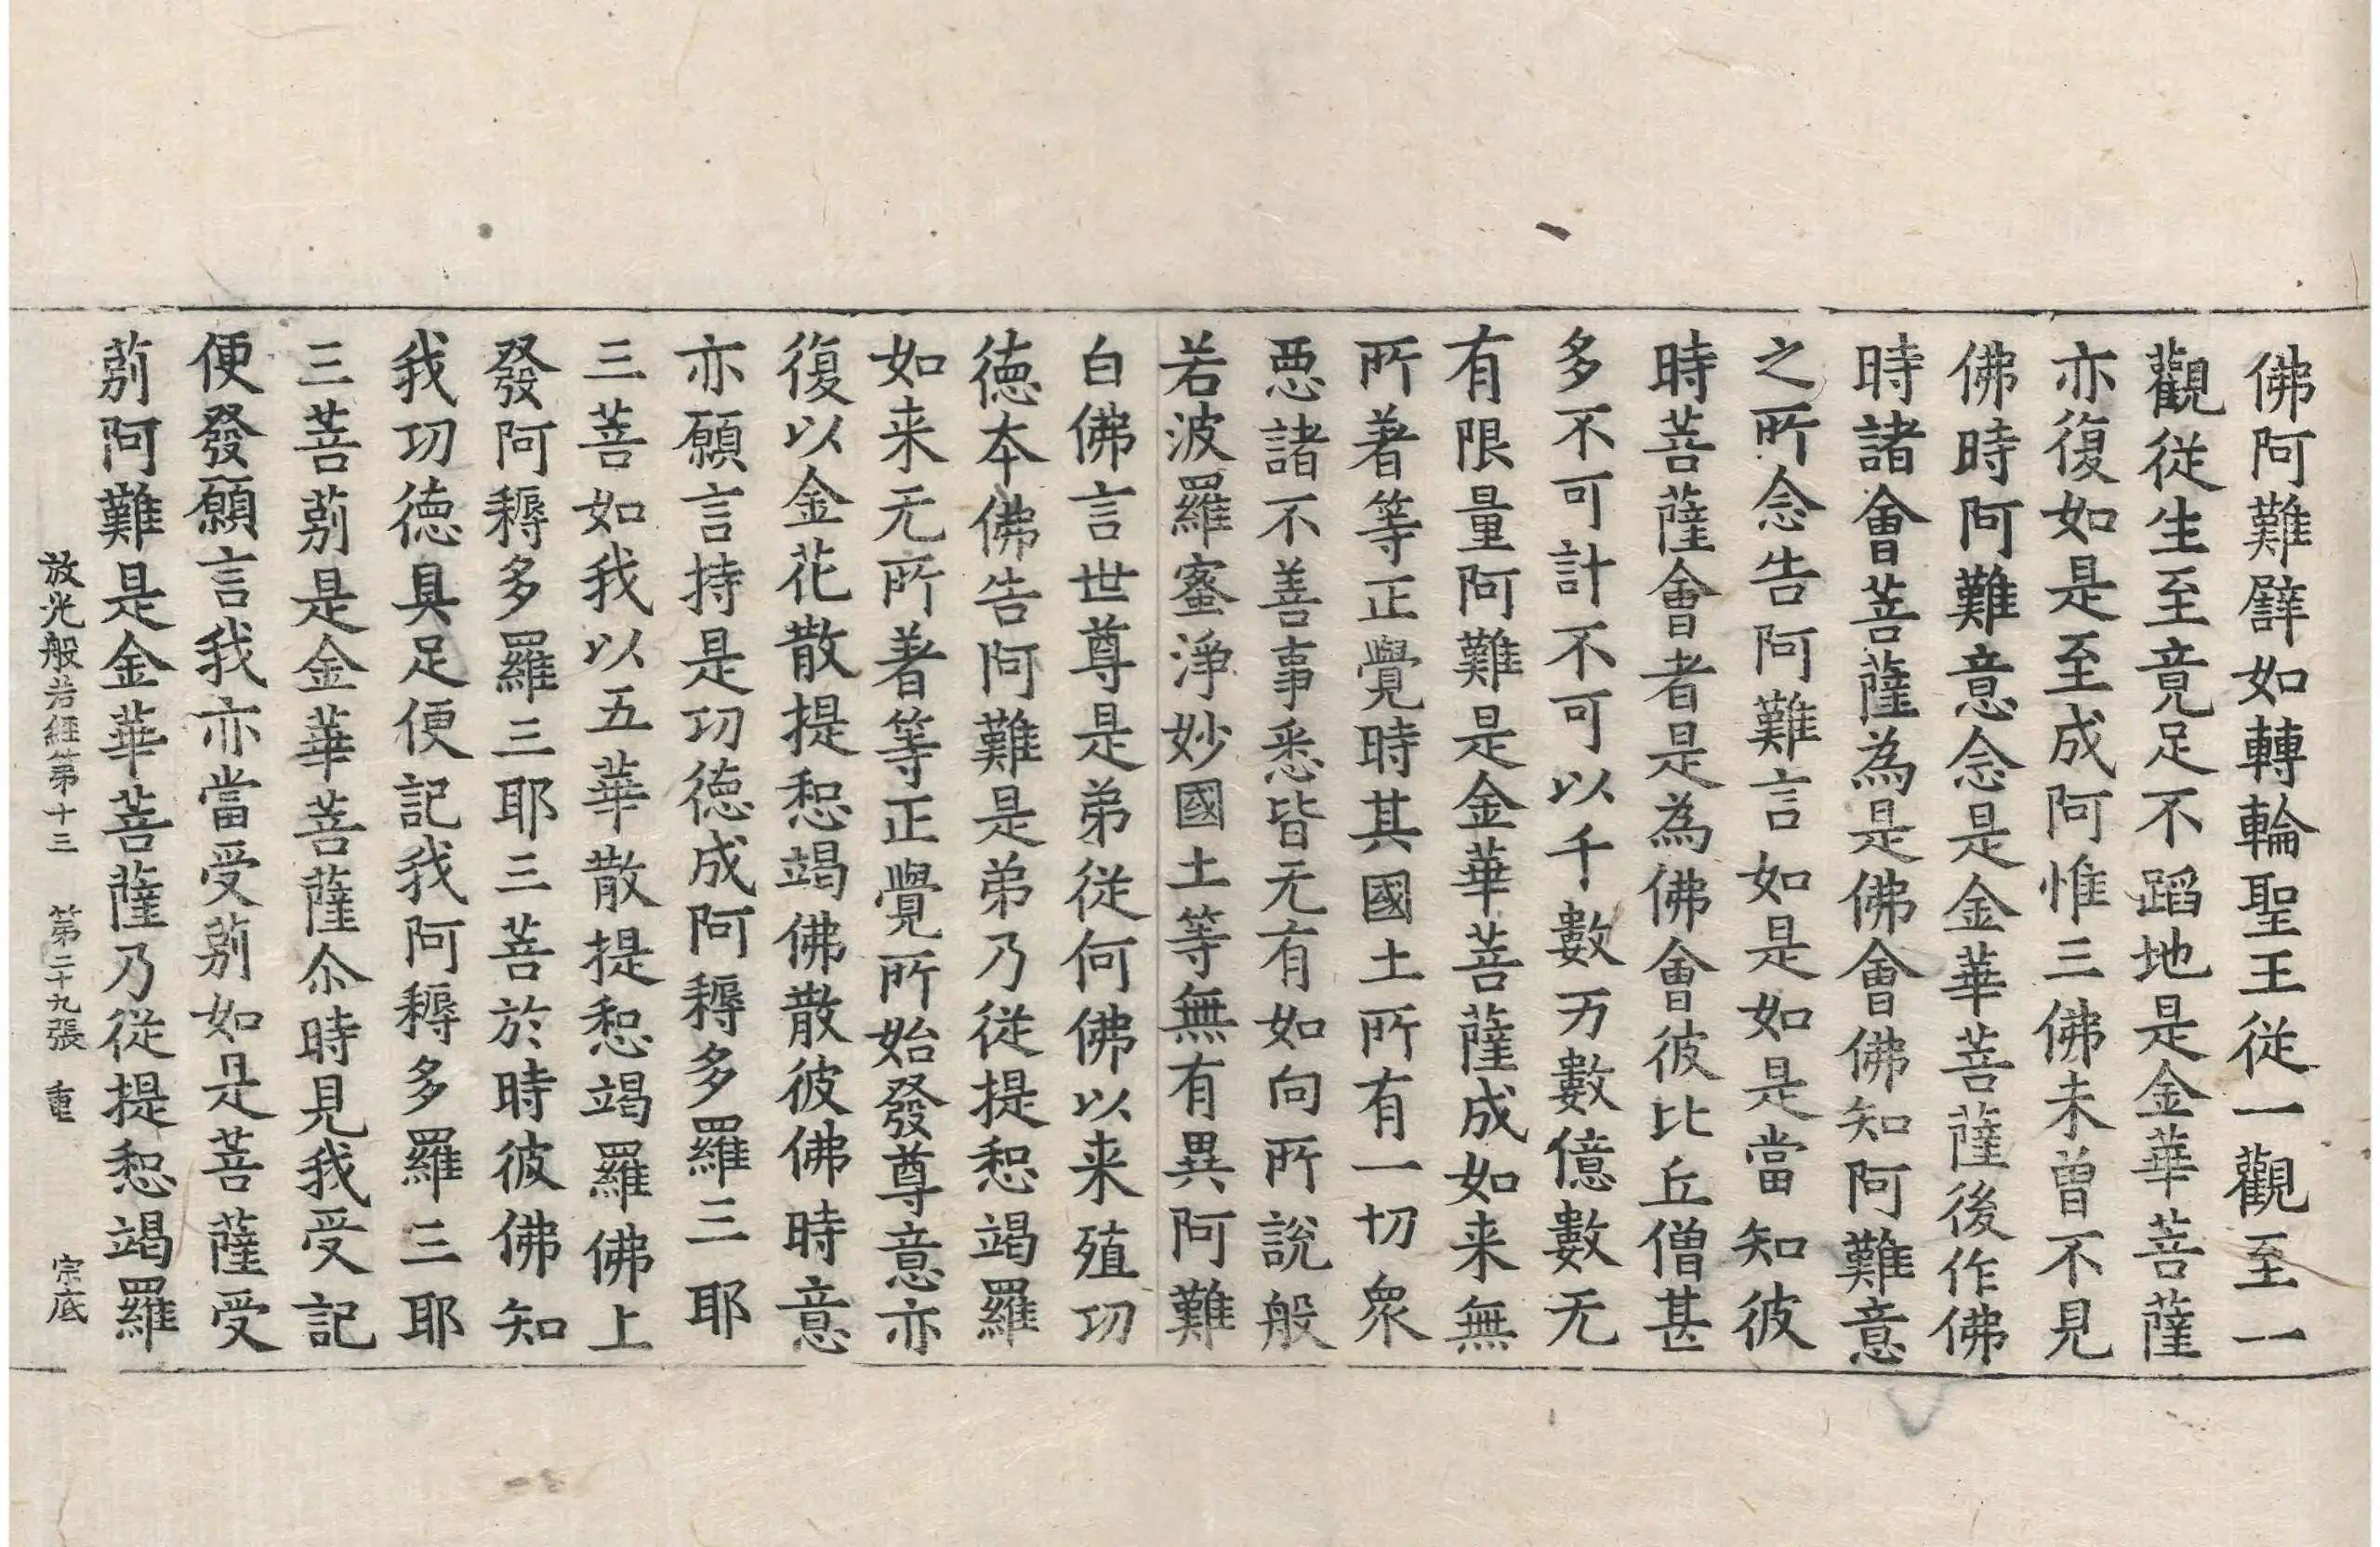 佛阿難譬如轉輪聖王從一觀至一
觀從生至竟足不蹈地是金華菩薩
亦復如是至成阿惟三佛未曾不見
佛時阿難意念是金華菩薩後作佛
時諸會菩薩為是佛會佛知阿難意
之所念告阿難言如是如是當知彼
時菩薩會者是為佛會彼比丘僧甚
多不可計不可以千數万數億數无
有限量阿難是金華菩薩成如来無
所著等正覺時其國土所有一切衆
惡諸不善事悉皆无有如向所說般
若波羅蜜淨妙國土等無有異阿難
白佛言世尊是弟從何佛以来殖功
德本佛告阿難是弟乃從提惒竭羅
如来无所著等正覺所始發尊意亦
復以金花散提惒竭佛散彼佛時意
亦願言持是功德成阿耨多羅三耶
三菩如我以五華散提惒竭羅佛上
發阿耨多羅三耶三菩於時彼佛知
我功德具足便記我阿耨多羅三耶
三菩莂是金華菩薩尒時見我受記
便發願言我亦當受莂如是菩薩受
莂阿難是金華菩薩乃從提惒竭羅
放光般若經第十三 第二十九張 重 宗底